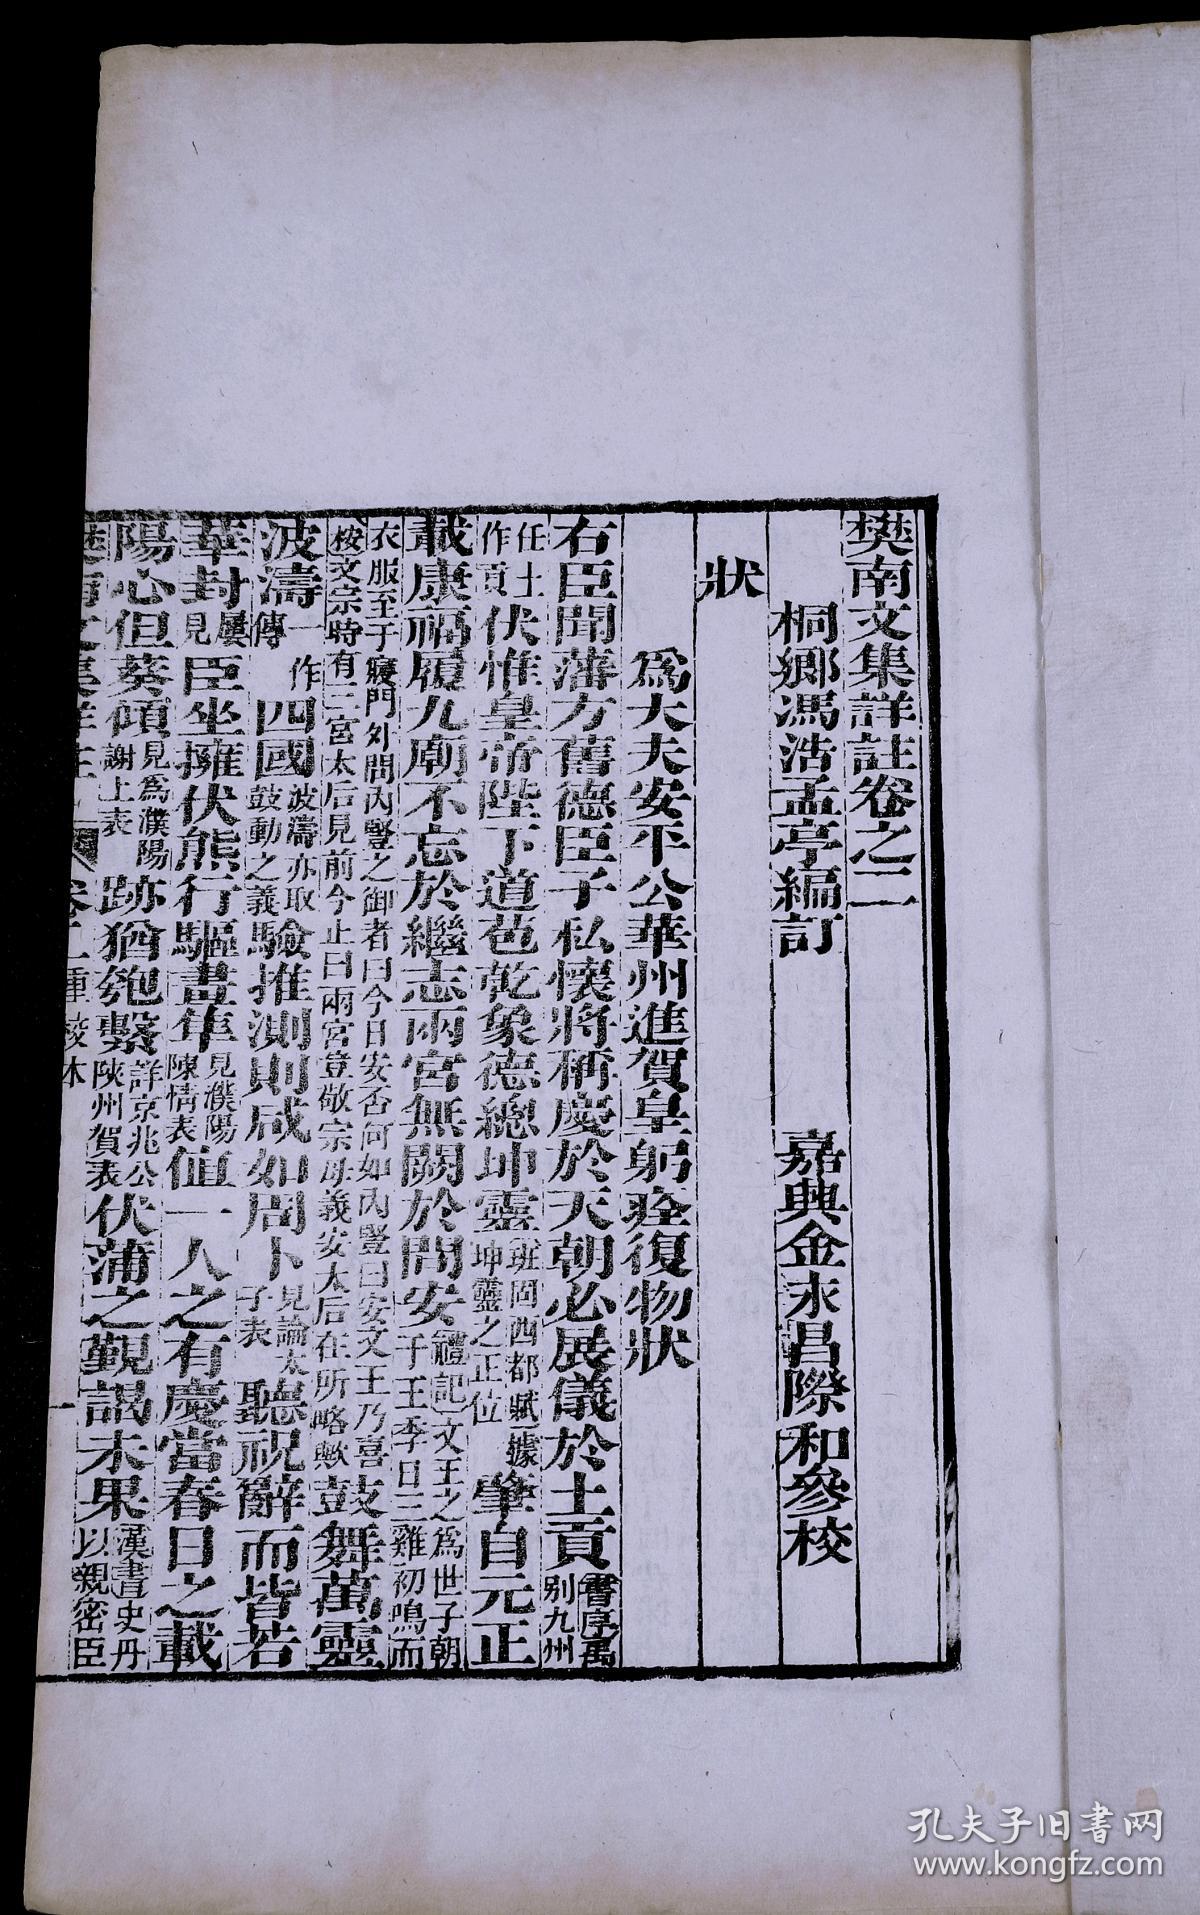 樊南文集詳註卷之二
桐鄉馮浩孟亭編訂 嘉興金永昌際和參校
狀
爲大夫安平公華州進賀皇躬痊復物狀
右臣聞藩方舊德臣子私懷將稱慶於天朝必展儀於土貢書序禹別九州
任土作貢伏惟皇帝陛下道苞乾象德總坤靈班固西都賦據坤靈之正位肇自元正
載康福履九廟不忘於繼志兩宮無闕於問安禮記文王之爲世子朝于王季日三雞初鳴而
衣服至于寢門外問內豎之御者曰今日安否何如內豎曰安文王乃喜按文宗時有三宮太后見前今止曰兩宮豈敬宗母義安太后在所略歟鼓舞萬靈
波濤一作傳四國波濤亦取鼓動之義驗推測則咸如周卜見論太子表聽祝辭而皆若
華封屢見臣坐擁伏熊行驅畫隼見濮陽陳情表值一人之有慶當春日之載
陽心但葵傾見爲濮陽謝上表跡猶匏繫詳京兆公陝州賀表伏蒲之覲謁未果漢書史丹以親密臣
樊南文集詳註 卷二 重校本 一
孔夫子旧书网
www.kongfz.com